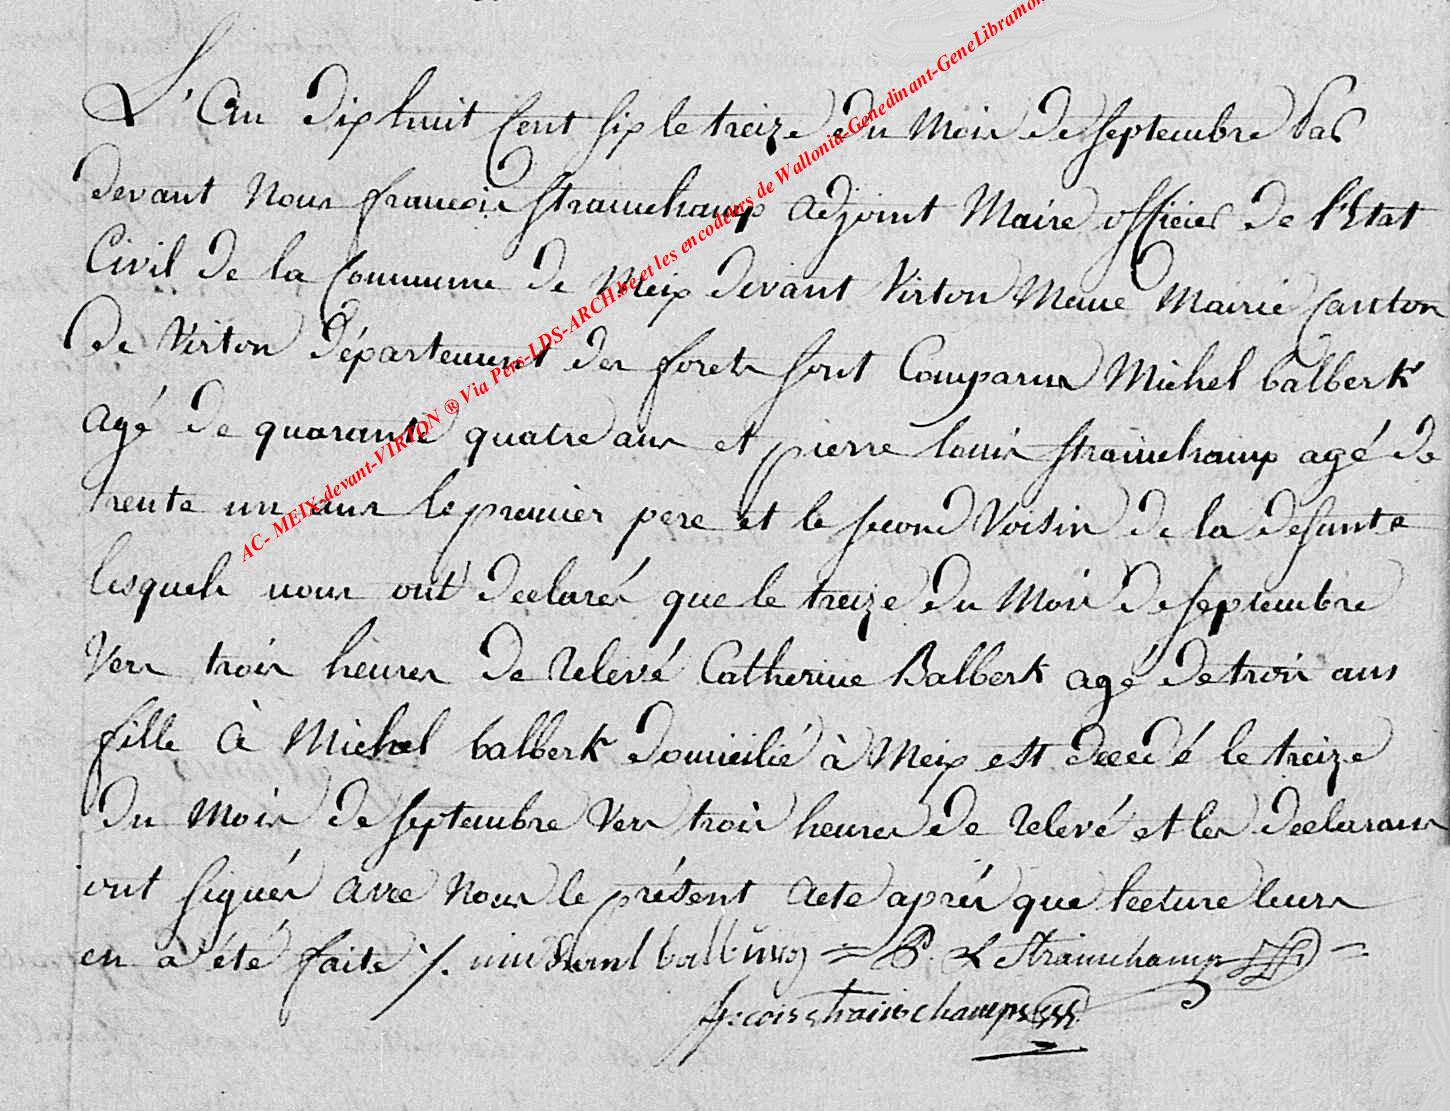 L'An dix huit Cent six le treize du Mois de septembre par
devant Nous francois strainchamp adjoint Maire officier de l'Etat
Civil de la Commune de Meix devant Virton Meme Mairie Canton
de Virton Département des forets sont Comparus Michel balberk
agé de quarante quatre ans et pierre louis strainchamp agé de
trente un ans le premier pere et le second Voisin de la defunte
lesquels nous ont declarés que le treize du Mois de septembre
Vers trois heures de relevé Catherine Balberk agé de trois ans
fille à Michel balberk domicilié à Meix est decedé le treize
du Mois de septembre Vers trois heures de relevé et les declarans
ont signés avec Nous le présent Acte aprés que lecture leurs
en a été faite /. = P. L Strainchamp =
f: cois strainchamps
AC- MEIX-devant-VIRTON ® Via Pers-LDS-ARCH.be et les encodeurs de Wallonia-Genedinant-GeneLibramon